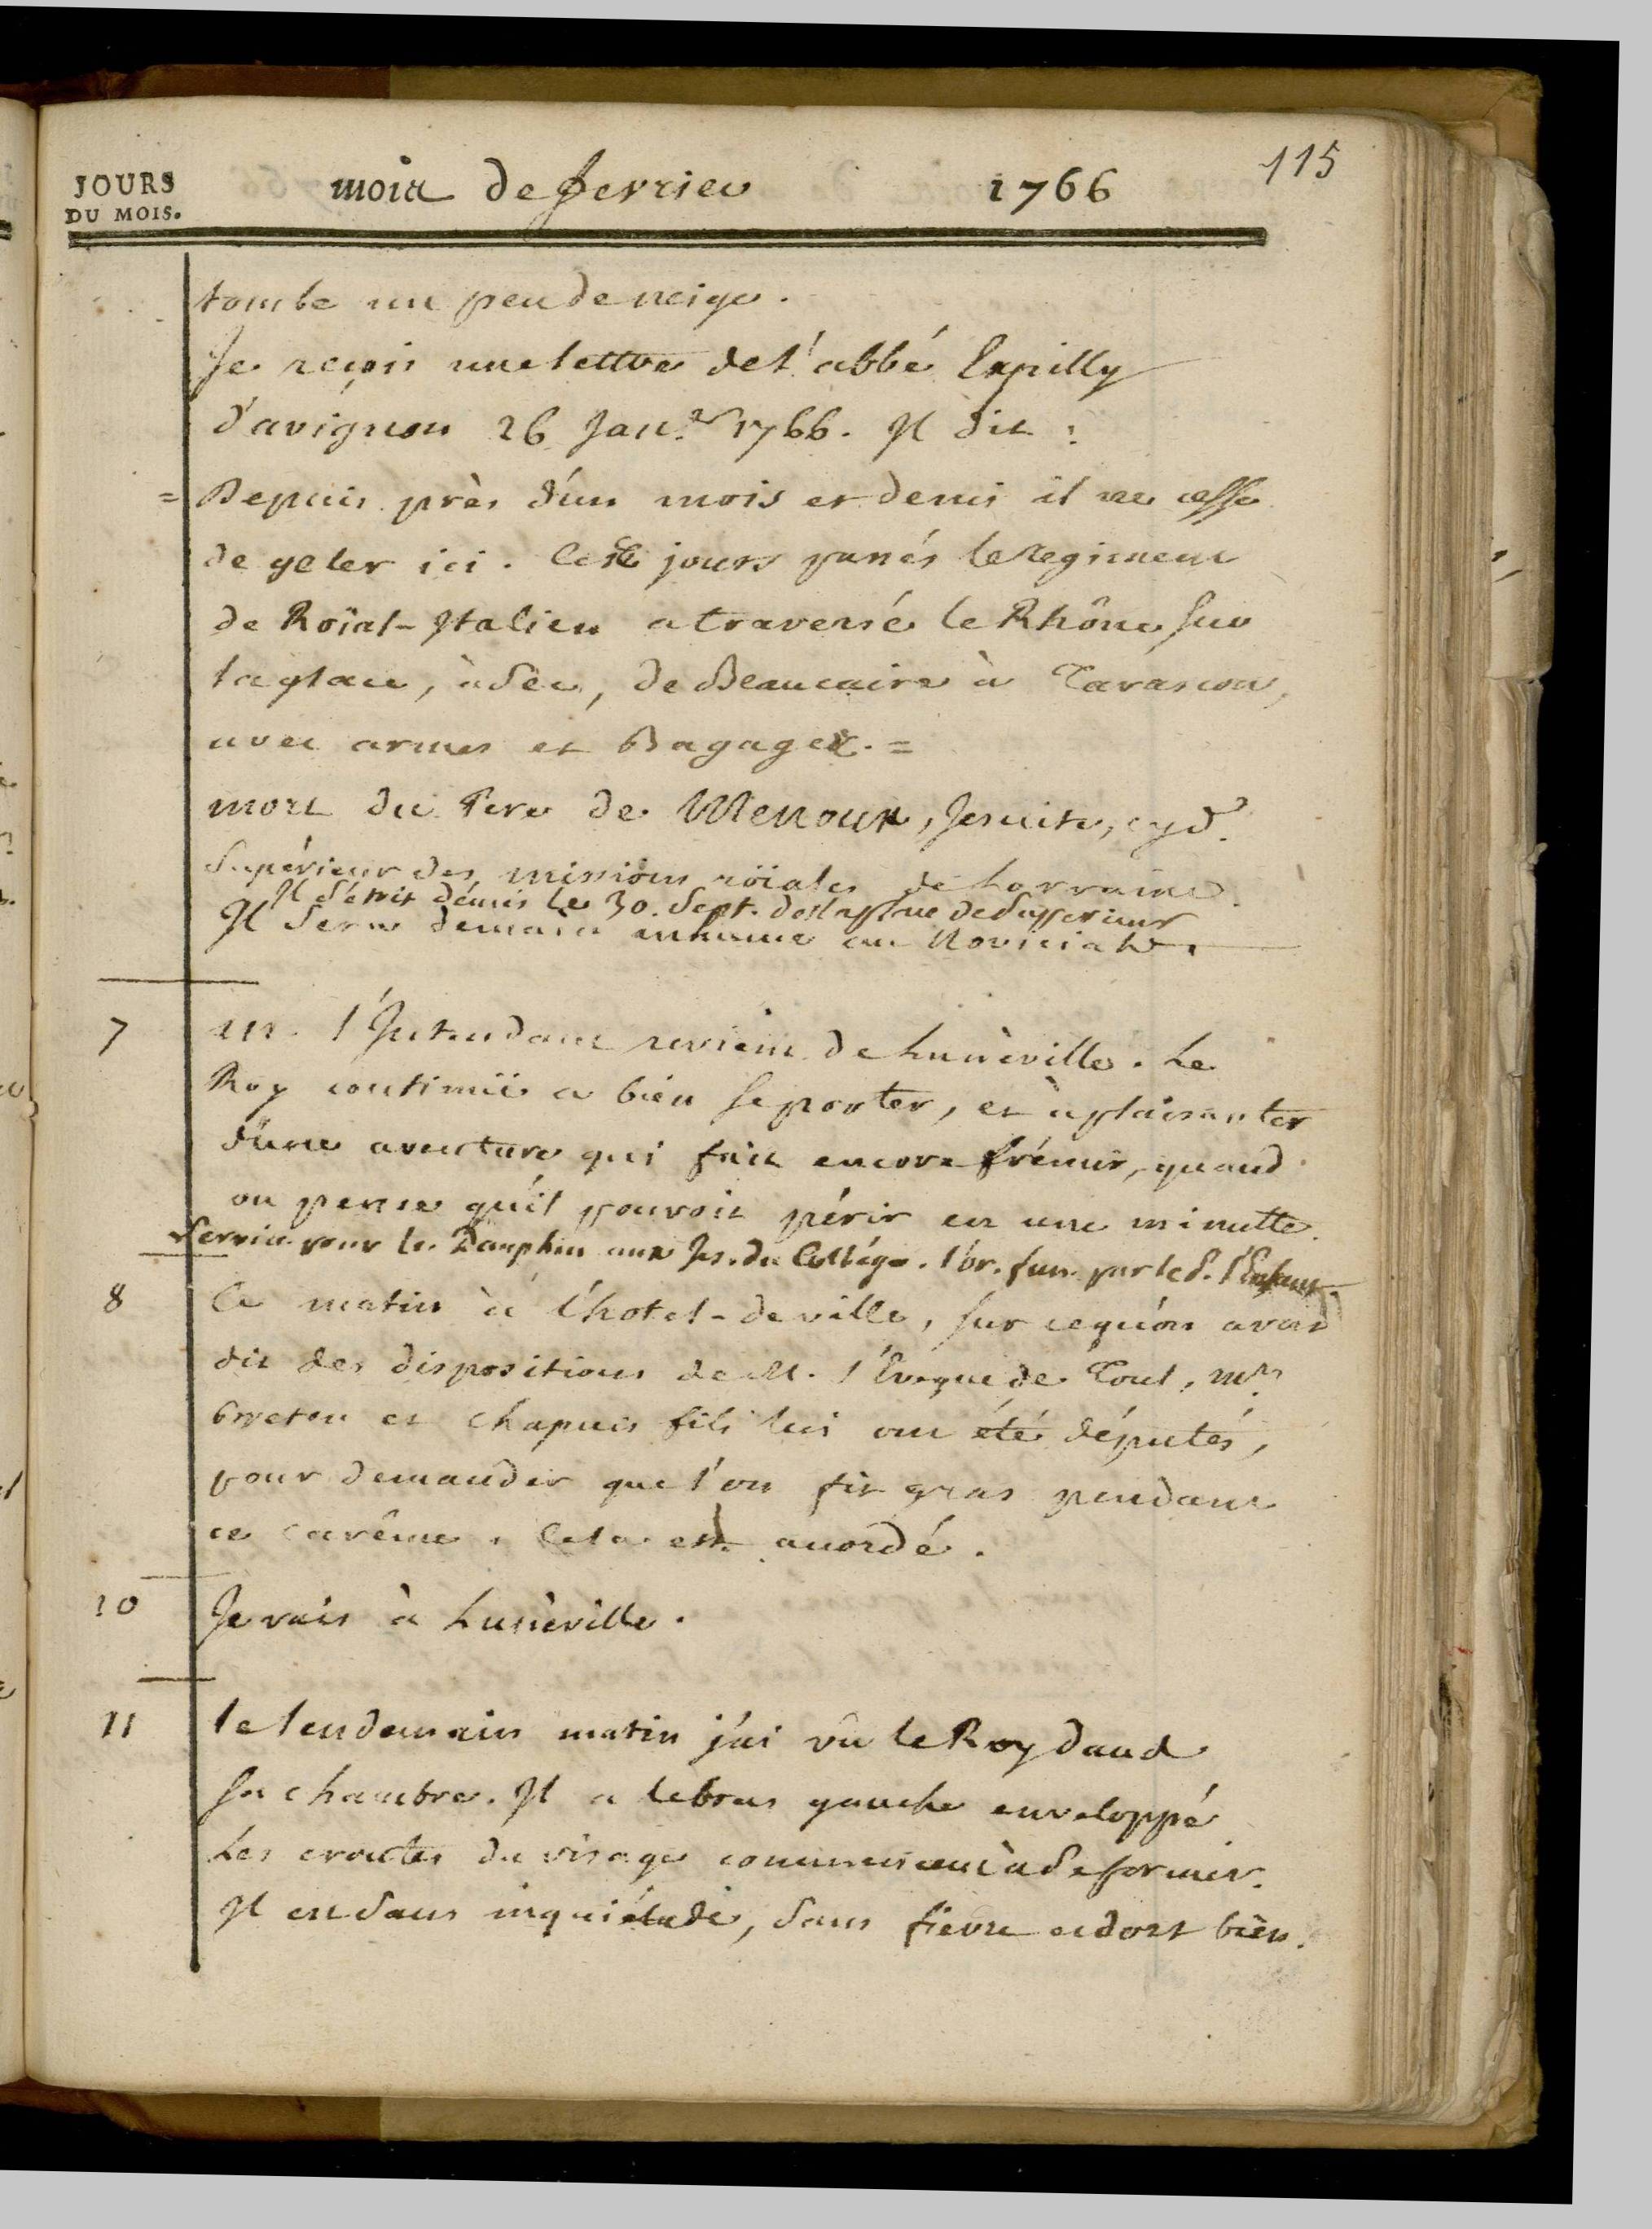 115
JOURS
DU MOIS.
mois de fevrier 1766
tombe un peu de neige.
Je reçois une lettre de l'abbé Expilly
d'avignon 26 Janr. 1766. Il dit:
= Depuis près d'un mois et demi il ne cesse
de geler ici. Ces jours passés le regiment
de Roïal-Italien a traversé le Rhône sur
la glace, à sec, de Beaucaire à Tarascon,
avec armes et Bagages. =
mort du Pere de Menoux, Jesuite, cyd.
Supérieur des missions roïales de Lorraine.
Il s'étoit démis le 30. Sept. de la place de Superieur
Il sera demain inhumé au Noviciat.
7 M. l'Intendant revient de Lunéville. Le
Roy continuë a bien se porter, et à plaisanter
d'une aventure qui fait encore frémir, quand
on pense qu'il pouvoit périr en une minutte.
Service pour le Dauphin aux Jes. du Collége. l'or. fun. par le P. l'Enfant.
8 Ce matin à l'hotel-de ville, sur ce qu'on avoit
dit des dispositions de M. l'Evêque de Toul, Mrs
breton et chapuis fils lui ont été députés,
pour demander que l'on fit gras pendant
ce carême. Cela est accordé.
10 Je vais à Lunéville.
11 le lendemain matin j'ai vû le Roy dans
sa chambre. Il a le bras gauche enveloppé
Les croutes du visage commencent à se former.
Il est sans inquiétude, sans fievre et dort bien.